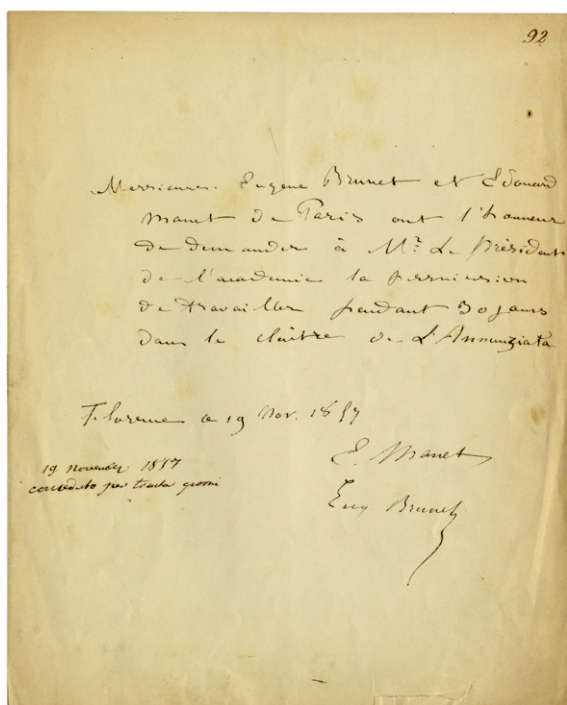 92
Messieurs. Eugene Brunet et Edouard
Manet de Paris ont l'honneur
de demander à Mr. Le Président
de l'academie la permission
de travailler pendant 30 jours
dans le cloître de L'Annunziata
Florence ce 19 Nov. 1857
19 novembre 1857
conceduto per trenta giorni
E. Manet
Eug Brunet